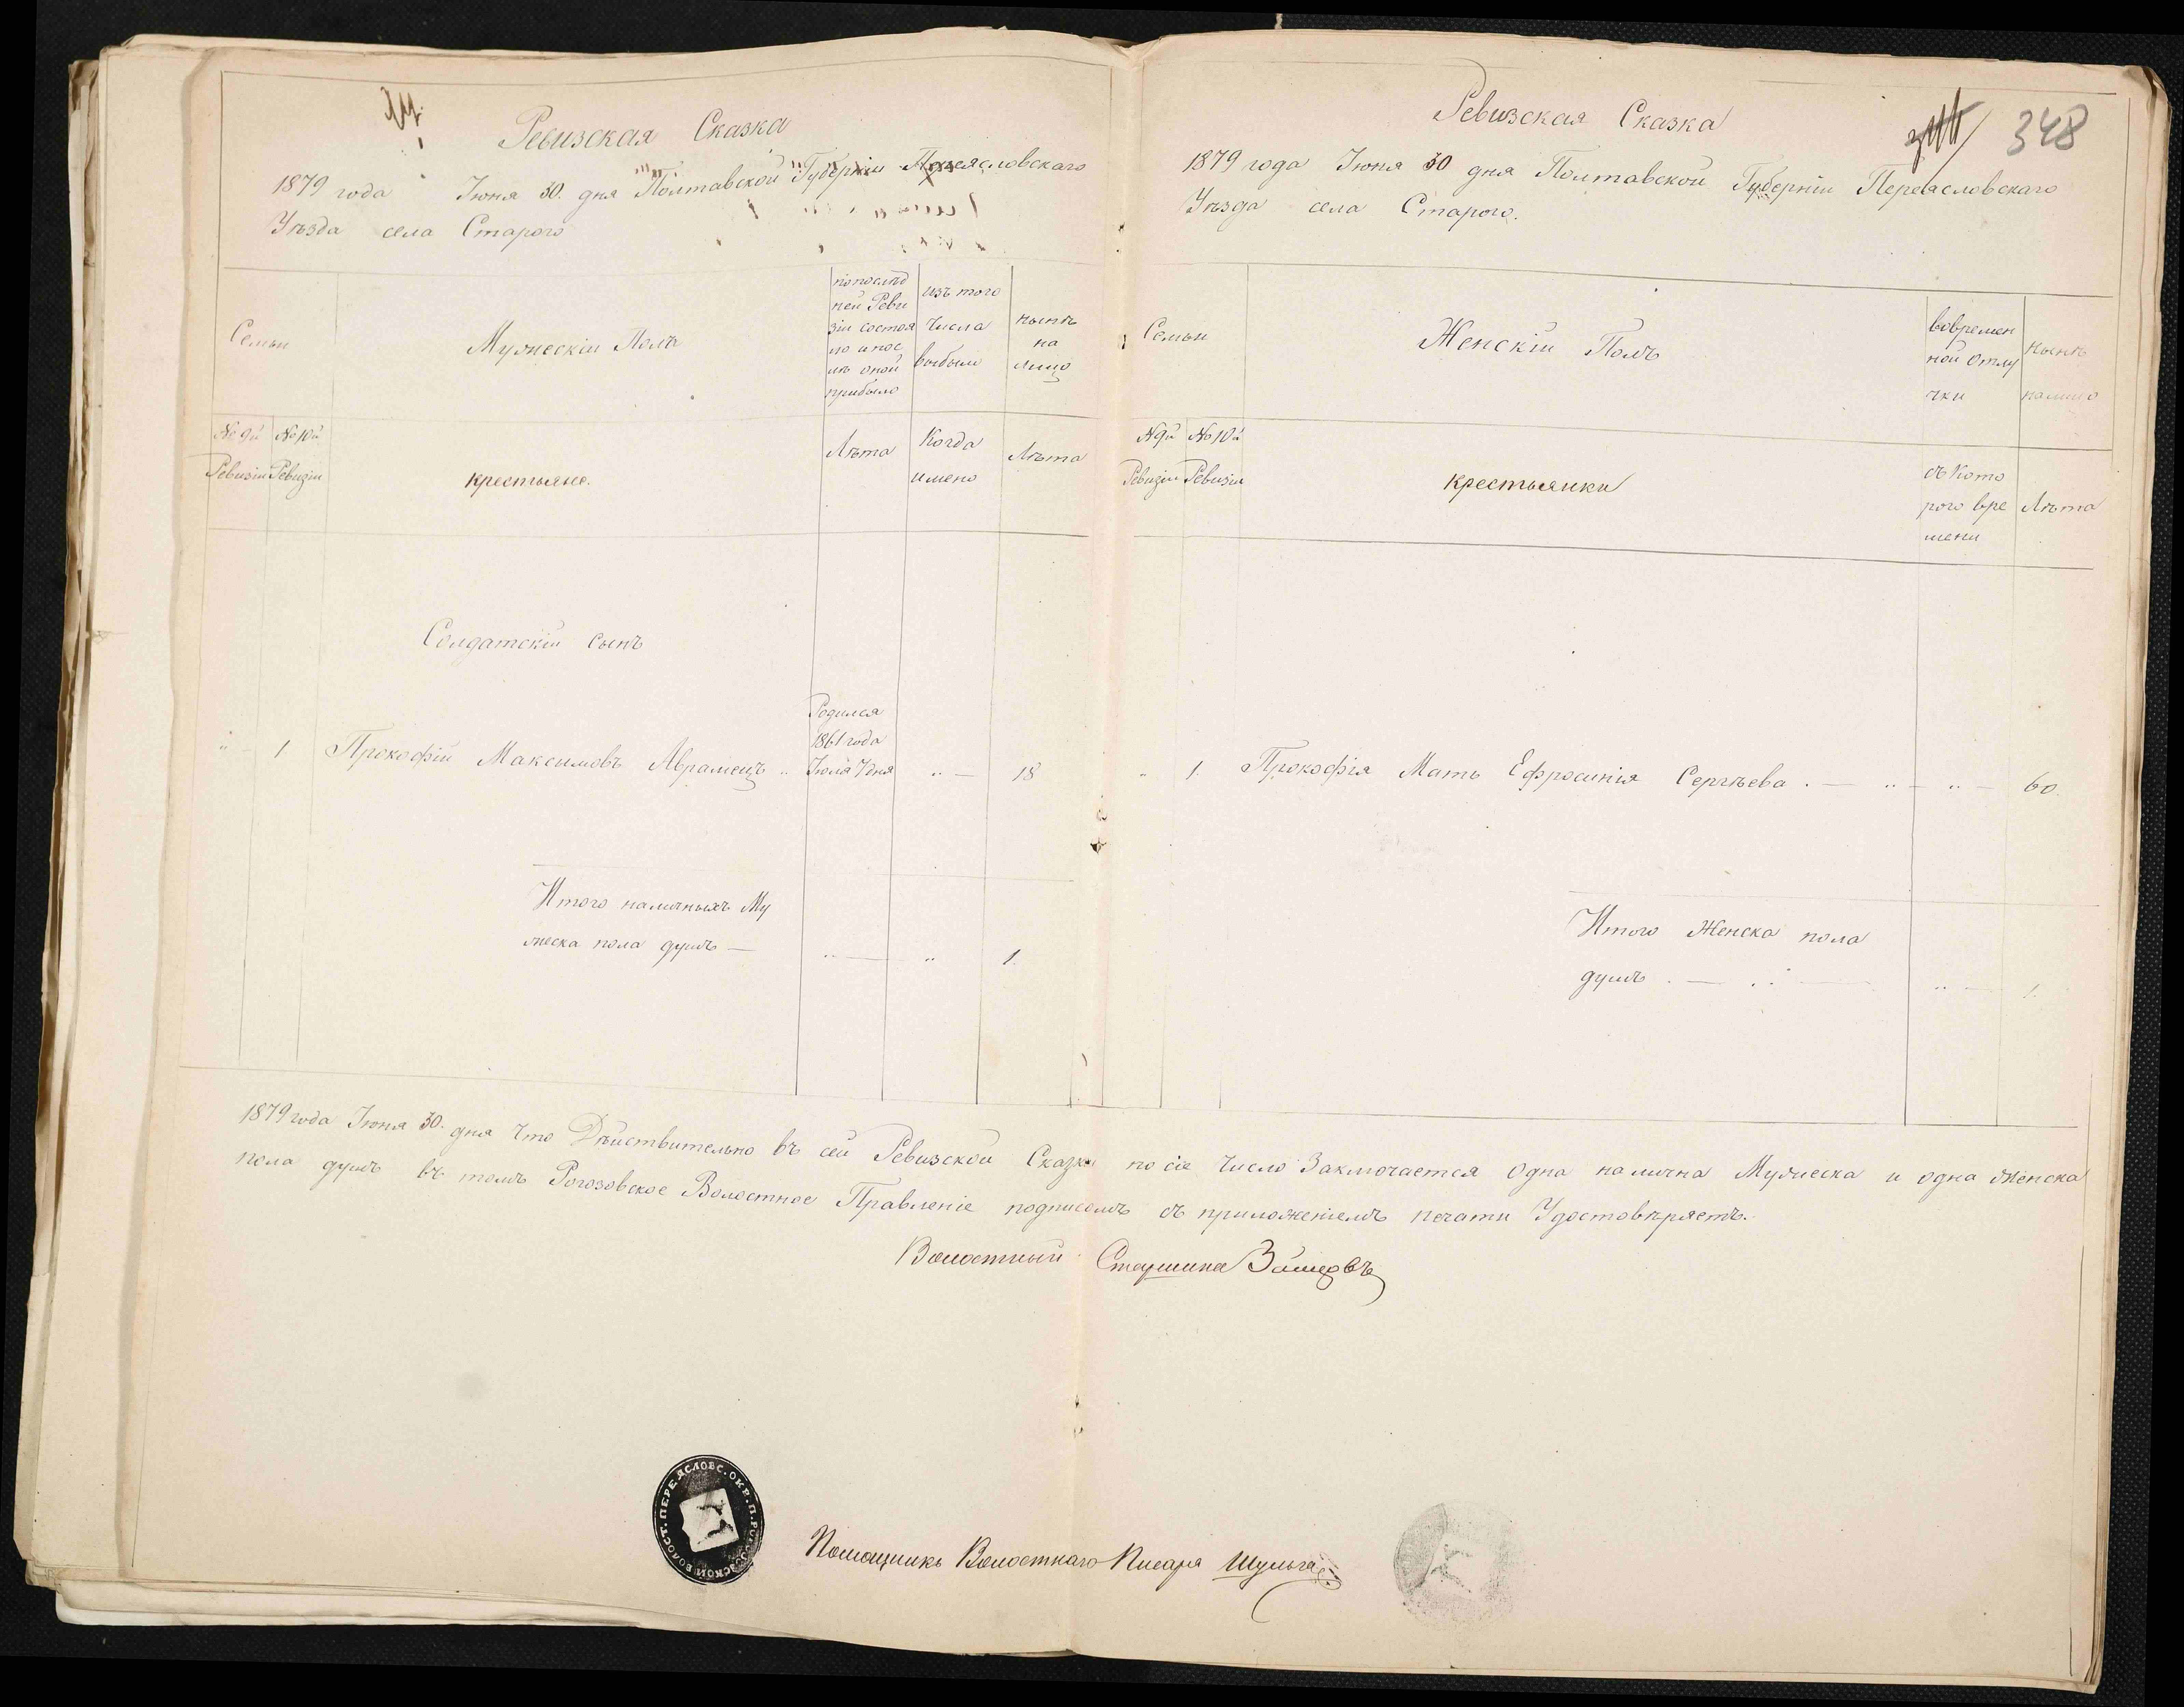 Ревизская Сказка
1879 года Іюня 30. дня Полтавской Губерніи Переясловскаго
Уѣзда села Старого
Семьи
Мужескій Полъ
попослѣд
ней Реви
зіи состоя
ло и пос
лѣ оной
прибыло
изъ того
числа
выбыло
нынѣ
на
лицо
№ 9й
Ревизіи
№ 10й
Ревизіи
крестьяне.
Лѣта
Когда
имено
Лѣта
Солдатскій сынъ
Родился
1861 года
Іюля 7 дня
" 1 Прокофій Максимовъ Аврамецъ " — 18
Итого наличныхъ Му
жеска пола душъ — " — " 1.
348
Ревизская Сказка
1879 года Іюня 30 дня Полтавской Губерніи Переясловскаго
Уѣзда села Старого.
Семьи
Женскій Полъ
вовремен
ной Отлу
чки
нынѣ
налицо
№ 9й
Ревизіи
№ 10й
Ревизіи
крестьянки
съ Кото
рого вре
мени
Лѣта
" 1. Прокофія Мать Ефросинія Сергѣева . — " — " — 60.
Итого Женска пола
душъ . — " — " — 1.
1879 года Іюня 30. дня Что Дѣйствительно въ сей Ревизской Сказки по сіе Число Заключается Одна налична Мужеска и одна Женска
пола душъ въ томъ Рогозовское Волостное Правленіе подписомъ съ приложеніемъ печати Удостовѣряетъ.
Волостный Старшина Зайцовъ
ВОЛОСТ. ПЕРЕЯСЛОВС. ОКР. П. РОГОЗОВСКОЙ
Помощникъ Волостнаго Писаря Шульга